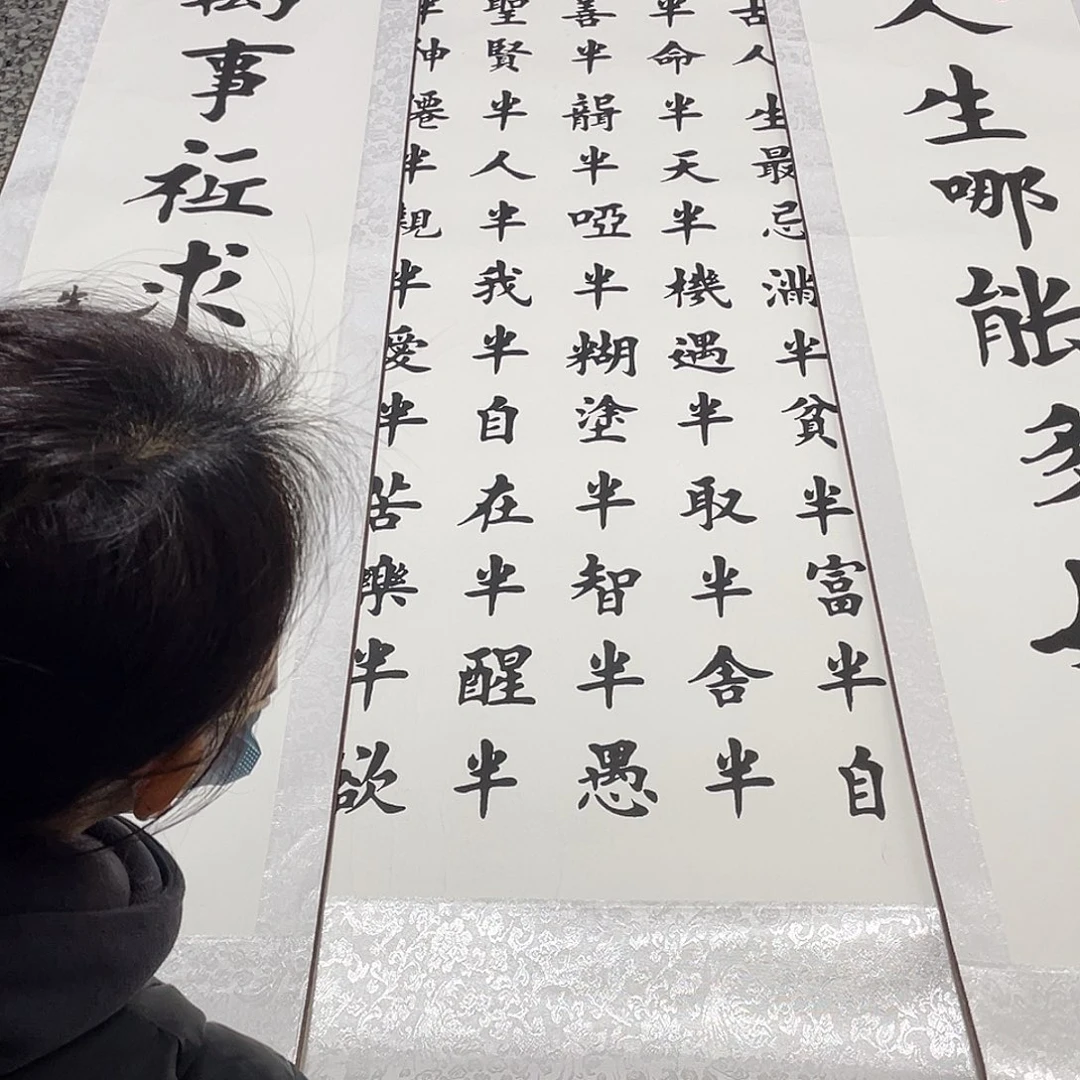 人生哪能多
古人生最忌滿半貧半富半自
半命半天半機遇半取半舍半
善半聾半啞半糊塗半智半愚
聖賢半人半我半自在半醒半
半神僊半親半愛半苦樂半欲
萬事祗求